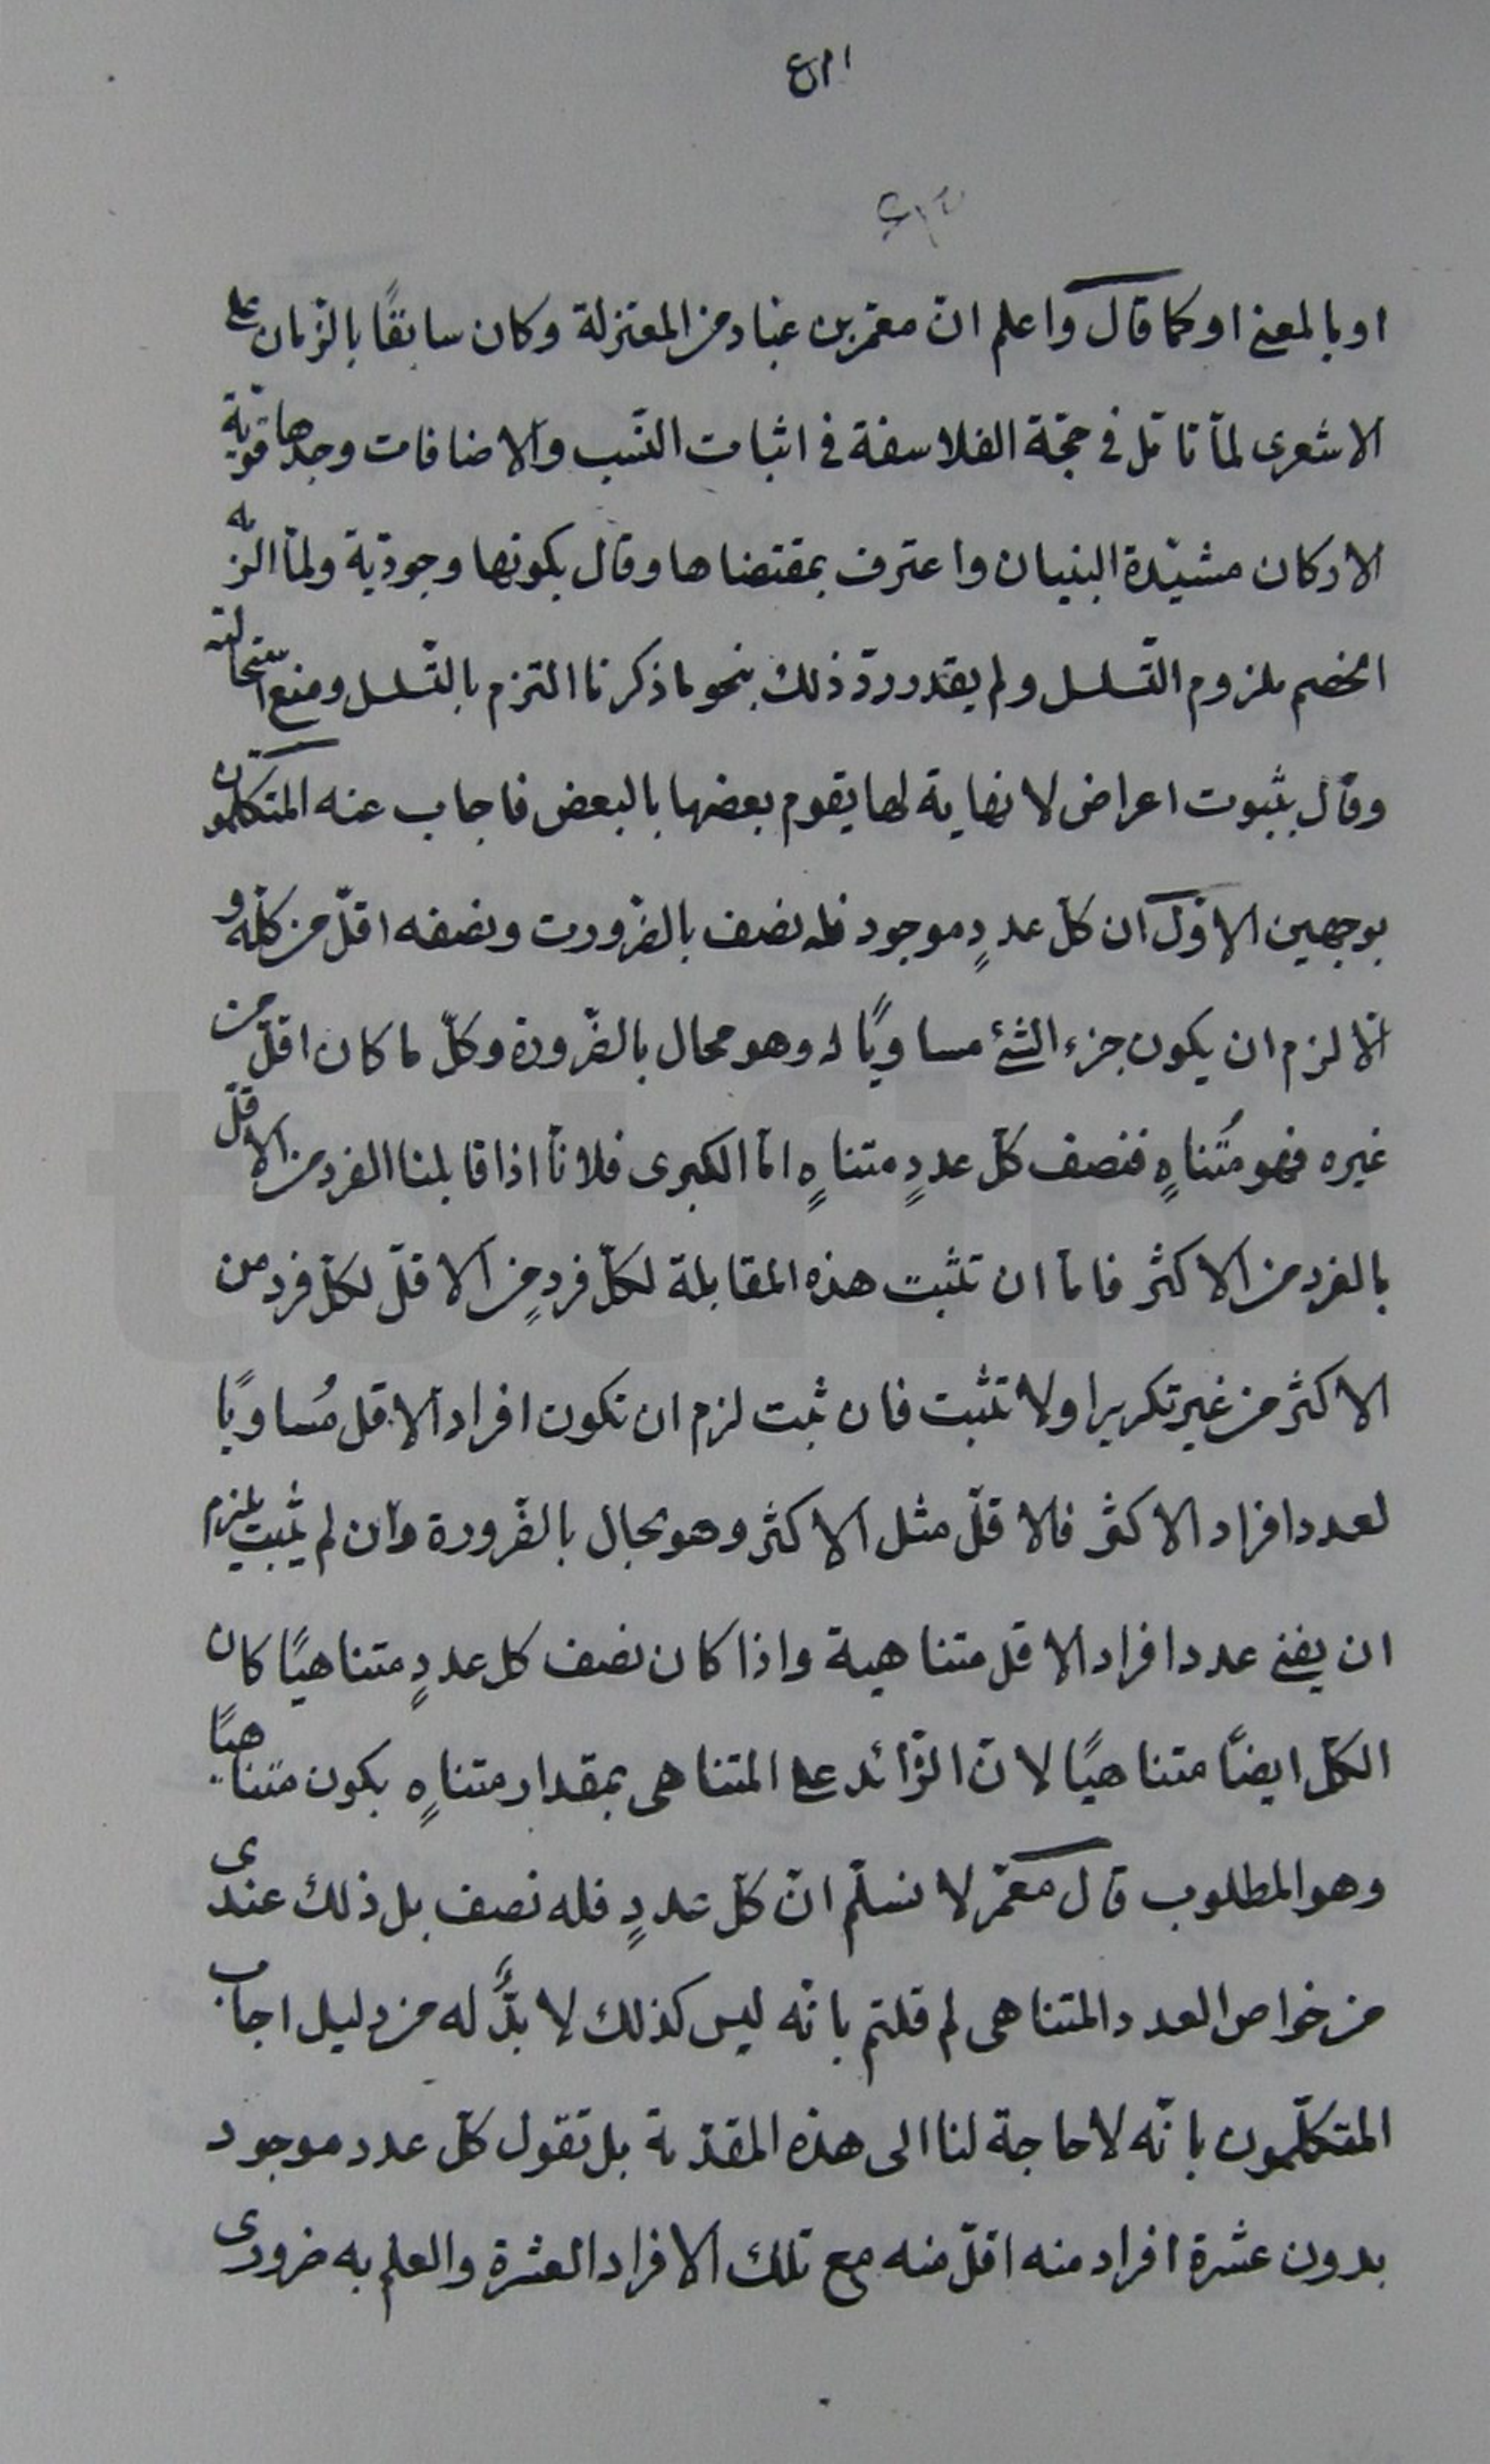 او بالمعنى او كما قال واعلم انّ معمّر بن عبّاد من المعتزلة وكان سابقًا بالزّمان على
الاشعرى لمّا تامّل فى حجّة الفلاسفة فى اثبات النّسب والاضافات وجدها قويّة
الاركان مشيّدة البنيان واعترف بمقتضاها وقال بكونها وجوديّة ولمّا الزمه
الخصم بلزوم التّسلسل ولم يقدر ردّ ذلك بنحو ما ذكرنا التزم بالتّسلسل ومنع استحالته
وقال بثبوت اعراض لا نهاية لها يقوم بعضها بالبعض فاجاب عنه المتكلّمون
بوجهين الاوّل ان كلّ عددٍ موجود فله نصف بالضّرورت ونصفه اقلّ من كلّه و
الّا لزم ان يكون جزء الشئ مساويًا له وهو محال بالضّرورة وكلّ ما كان اقلّ من
غيره فهو مُتناهٍ فنصف كلّ عددٍ متناهٍ امّا الكبرى فلانّا اذا قابلنا الفرد من الاقلّ
بالفرد من الاكثر فامّا ان تثبت هذه المقابلة لكلّ فردٍ من الاقلّ لكلّ فرد من
الاكثر من غير تكرير او لا تثبت فان ثبت لزم ان تكون افراد الاقل مُساويًا
لعدد افراد الاكثر فالاقلّ مثل الاكثر وهو محال بالضّرورة وان لم يثبت يلزم
ان يفنى عدد افراد الاقل متناهية واذا كان نصف كل عددٍ متناهيًا كان
الكلّ ايضًا متناهيًا لانّ الزّائد على المتناهى بمقدار متناهٍ يكون متناهيًا
وهو المطلوب قال معمّر لا نسلّم انّ كلّ عددٍ فله نصف بل ذلك عندى
من خواص العدد المتناهى لم قلتم بانّه ليس كذلك لا بدَّ له من دليل اجاب
المتكلّمون بانّه لا حاجة لنا الى هذه المقدّمة بل تقول كلّ عدد موجود
بدون عشرة افراد منه اقلّ منه مع تلك الافراد العشرة والعلم به ضرورى